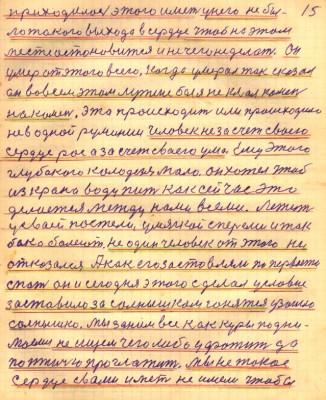 приходилось этого иметь у него не бы- 15
ло такого выхода в сердце чтоб на этом
месте остановится и нечего неделат. Он
умер от этого всего, когда умерал так сказал
он во всем этом лутше бы я не клал камен
на камен. Это происходит или происходило
не в одной румынии человек не за счет своего
сердце рос а за счет своего ума. Ему этого
глубокого колодезя мало. он хотел чтоб
из крана воду пит как сейчас это
делается между нами всеми. Лежит
у своей постели, у мячкой спереми и так
бако болеит. не один человек от этого не
отказался. А как его заставляли по первому
спат он и сегодня этого сделал условие
заставило за солнышком гонятся узошло
солнышко. мы за ним все как куры подни-
маемся не ищем чего либо ухватит да
по птичию проглатит. мы не такое
сердце с вами имеет не имеем чтоб бы